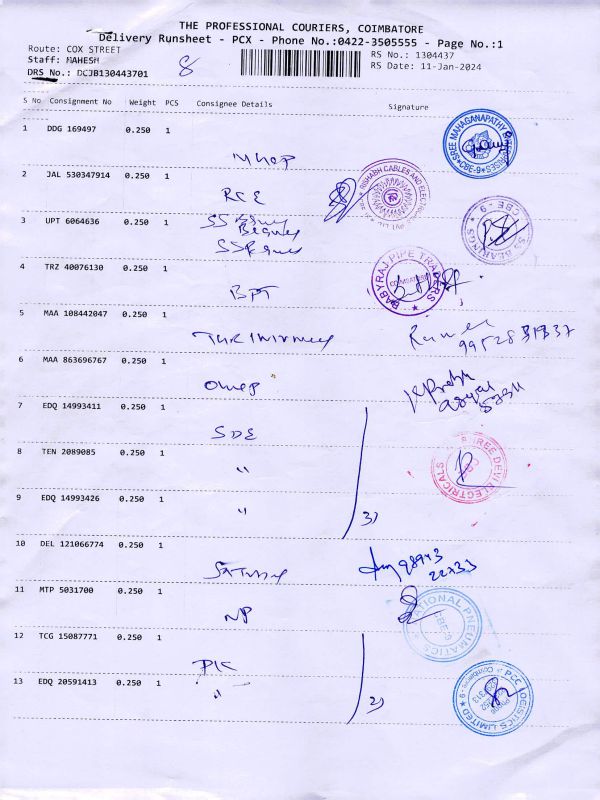 THE PROFESSIONAL COURIERS, COIMBATORE
Delivery Runsheet - PCX - Phone No.:0422-3505555 - Page No.:1
Route: COX STREET
RS No.: 1304437
Staff: MAHESH
8
RS Date: 11-Jan-2024
DRS No.: DCJB130443701
S No Consignment No Weight PCS Consignee Details Signature
1 DDG 169497 0.250 1
SREE MAHAGANAPATHY
CBE-9
2 JAL 530347914 0.250 1
RCE
RISHABH CABLES AND
3 UPT 6064636 0.250 1
SS
BEARINGS
CBE - 9
4 TRZ 40076130 0.250 1
BPT
BABYRAJ PIPE TRADERS
COIMBATORE
5 MAA 108442047 0.250 1
6 MAA 863696767 0.250 1
7 EDQ 14993411 0.250 1
SDE
8 TEN 2089085 0.250 1
"
SREE DEVI ELECTRICALS
9 EDQ 14993426 0.250 1
"
3)
10 DEL 121066774 0.250 1
98943
22733
11 MTP 5031700 0.250 1
NP
NATIONAL PNEUMATICS
CBE-9
12 TCG 15087771 0.250 1
13 EDQ 20591413 0.250 1
"
2)
PCC LOGISTICS LIMITED